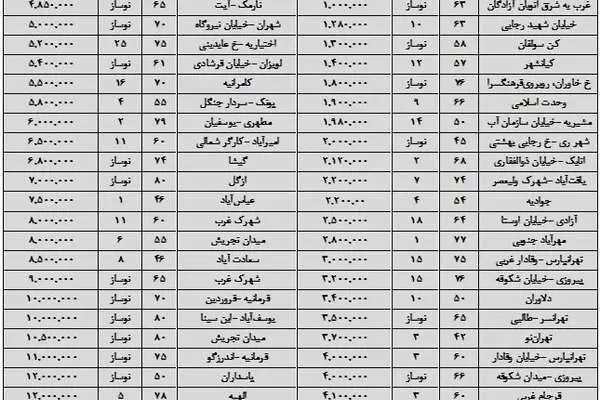 غرب به شرق اتوبان آزادگان ۶۳ نوساز ۱.۰۰۰.۰۰۰ نارمک -آیت ۶۵ نوساز ۴.۸۵۰.۰۰۰
خیابان شهید رجایی ۶۳ ۱۰ ۱.۲۸۰.۰۰۰ شهران -خیابان نیروگاه ۷۰ نوساز ۵.۰۰۰.۰۰۰
کن سولقان ۵۸ نوساز ۱.۳۰۰.۰۰۰ اختیاریه -خ عابدینی ۷۵ ۲۵ ۵.۲۰۰.۰۰۰
کیانشهر ۵۷ ۱۲ ۱.۴۰۰.۰۰۰ لویزان -خیابان فرشادی ۶۱ نوساز ۵.۴۰۰.۰۰۰
خ خاوران، روبروی‌فرهنگسرا ۷۶ نوساز ۱.۸۰۰.۰۰۰ کامرانیه ۷۰ ۱۶ ۵.۵۰۰.۰۰۰
وحدت اسلامی ۶۶ ۹ ۱.۹۰۰.۰۰۰ پونک -سردار جنگل ۵۵ ۴ ۵.۸۰۰.۰۰۰
مشیریه -خیابان سازمان آب ۵۰ ۱۴ ۱.۹۸۰.۰۰۰ مطهری -یوسفیان ۷۹ ۲ ۶.۰۰۰.۰۰۰
شهر ری -خ رجایی بهشتی ۴۵ نوساز ۲.۰۰۰.۰۰۰ امیرآباد -کارگر شمالی ۶۰ ۱۱ ۶.۵۰۰.۰۰۰
اتابک -خیابان ذوالفقاری ۶۸ ۲ ۲.۱۲۰.۰۰۰ گیشا ۷۴ نوساز ۶.۸۰۰.۰۰۰
یافت‌آباد -شهرک ولیعصر ۷۴ ۷ ۲.۲۰۰.۰۰۰ ازگل ۸۰ نوساز ۷.۰۰۰.۰۰۰
جوادیه ۵۴ ۴ ۲.۲۰۰.۰۰ عباس‌آباد ۴۶ ۱ ۷.۵۰۰.۰۰۰
آزادی -خیابان اوستا ۶۴ ۱۸ ۲.۵۰۰.۰۰۰ شهرک غرب ۶۰ ۱۱ ۸.۰۰۰.۰۰۰
مهرآباد جنوبی ۷۷ ۱ ۲.۸۰۰.۰۰۰ میدان تجریش ۵۵ ۶ ۸.۰۰۰.۰۰۰
تهرانپارس -وفادار غربی ۷۵ ۱۵ ۳.۰۰۰.۰۰۰ سعادت آباد ۴۶ ۸ ۸.۵۰۰.۰۰۰
پیروزی -خیابان شکوفه ۷۶ ۱۵ ۳.۲۰۰.۰۰۰ شهرک غرب ۶۵ نوساز ۹.۰۰۰.۰۰۰
دلاوران ۵۰ ۱۰ ۳.۴۰۰.۰۰۰ فرمانیه -فروردین ۷۰ نوساز ۱۰.۰۰۰.۰۰۰
تهرانسر -طالبی ۶۵ نوساز ۳.۵۰۰.۰۰۰ یوسف‌آباد -ابن سینا ۸۰ نوساز ۱۰.۰۰۰.۰۰۰
تهران‌نو ۴۲ ۳ ۳.۷۰۰.۰۰۰ میدان تجریش ۸۰ نوساز ۱۰.۵۰۰.۰۰۰
تهرانپارس -خیابان وفادار ۶۰ ۳ ۴.۰۰۰.۰۰۰ فرمانیه -اندرزگو ۷۵ نوساز ۱۱.۰۰۰.۰۰۰
پیروزی -میدان شکوفه ۶۶ نوساز ۴.۰۰۰.۰۰۰ پاسداران ۵۰ نوساز ۱۲.۰۰۰.۰۰۰
فرجام غربی ۶۰ ۳ ۴.۱۰۰.۰۰۰ الهیه ۷۸ ۵ ۱۲.۰۰۰.۰۰۰